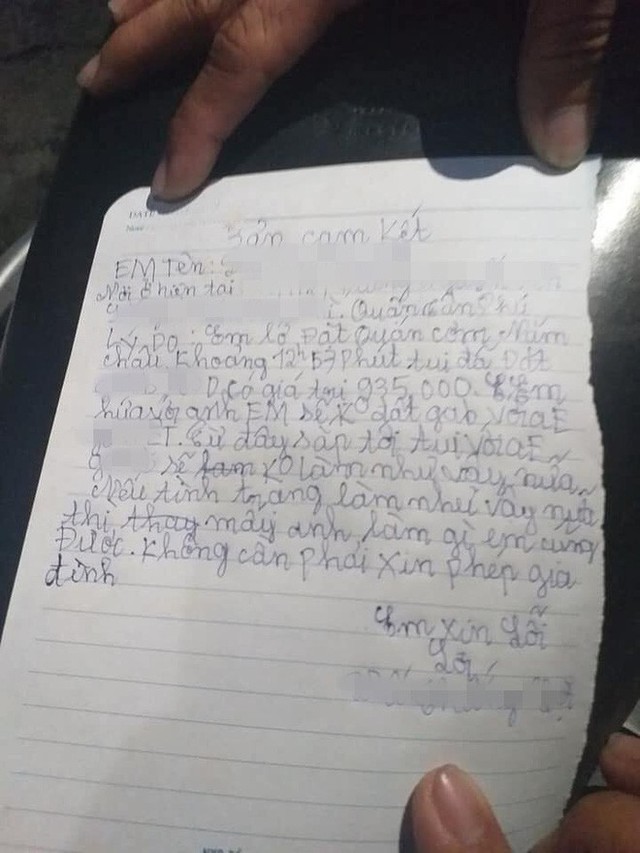 DATE
Bản cam kết
EM Tên:
Nơi ở hiện tại
Quán Tân Phú
Lý Do: Em lở Đặt Quán cơm Năm
châu. Khoảng 12h 57 Phút tui đã Đặt
Có giá trị 935,000. Em
hứa với anh EM sẽ Ko đặt gab, với aE
T. Từ đây sắp tới tui với aE
sẽ làm Ko làm như vậy nữa.
Nếu tình trạng làm như vậy nữa
thì thay mấy anh làm gì em cung
Được. Không cần phải xin phép gia
đình
Em xin Lỗi